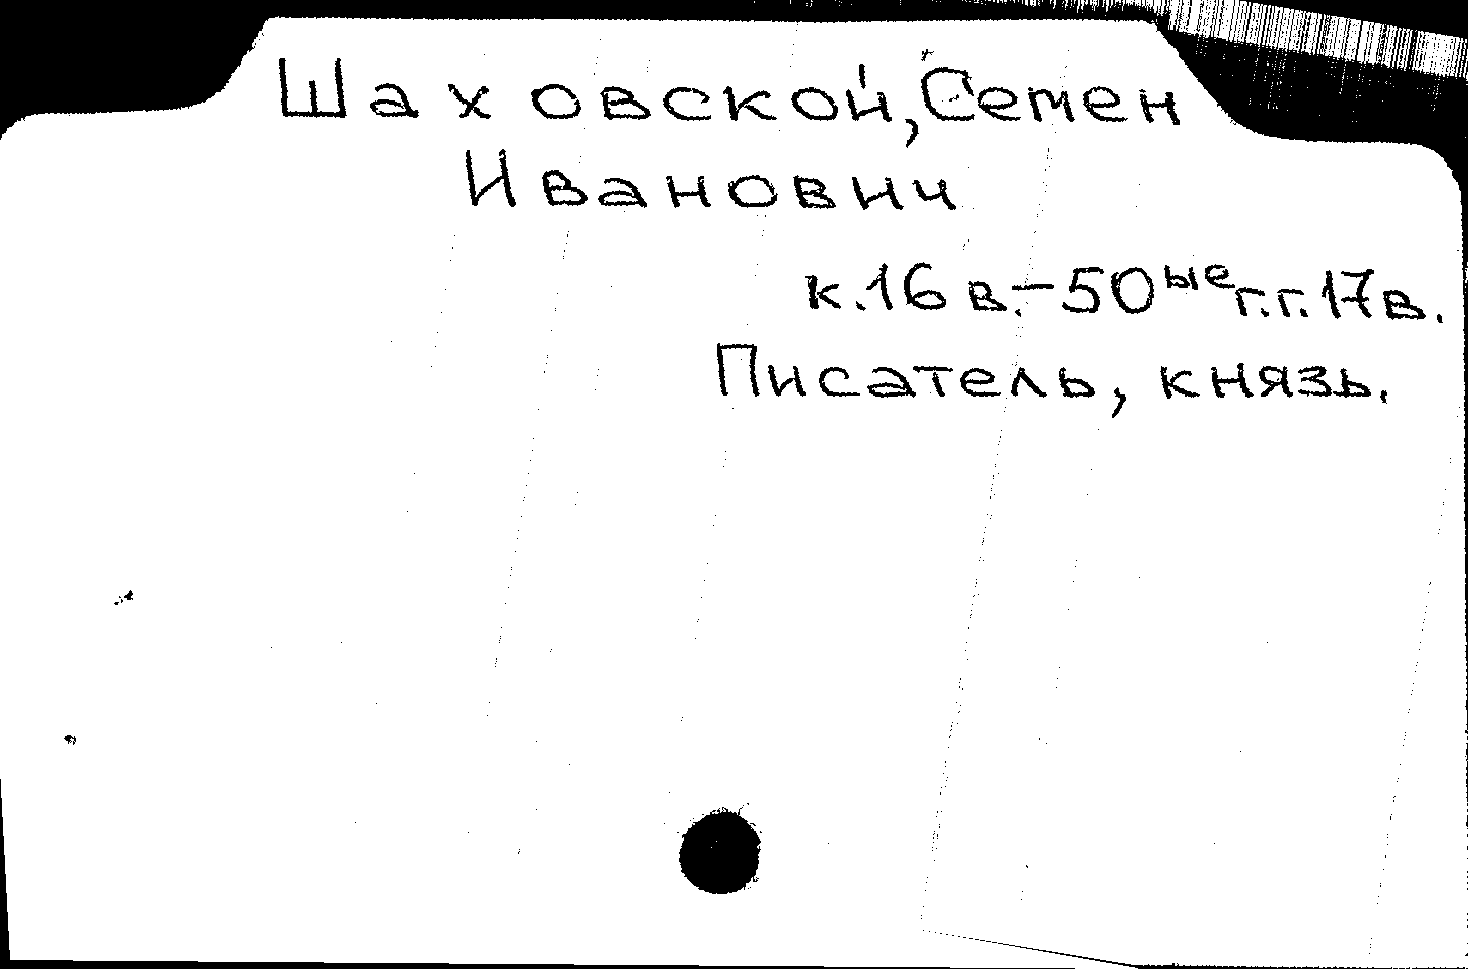 Шаховской, Семен
Иванович
к.16 в.-50ые г.г. 17в.
Писатель, князь.